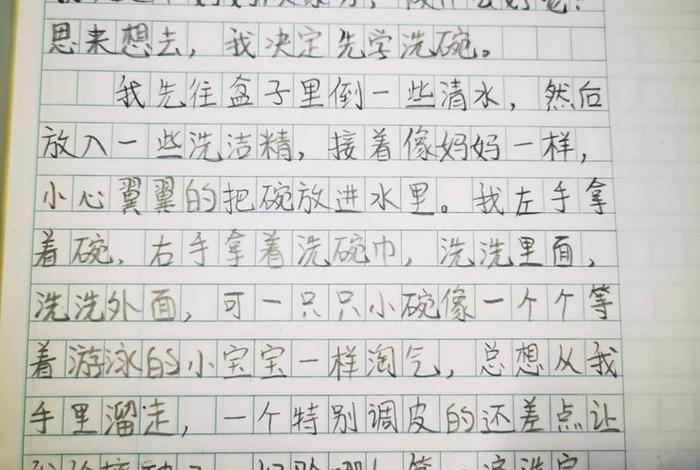 思来想去，我决定先学洗碗。
我先往盒子里倒一些清水，然后
放入一些洗洁精，接着像妈妈一样，
小心翼翼的把碗放进水里。我左手拿
着碗，右手拿着洗碗巾，洗洗里面，
洗洗外面，可一只只小碗像一个个等
着游泳的小宝宝一样淘气，总想从我
手里溜走，一个特别调皮的还差点让